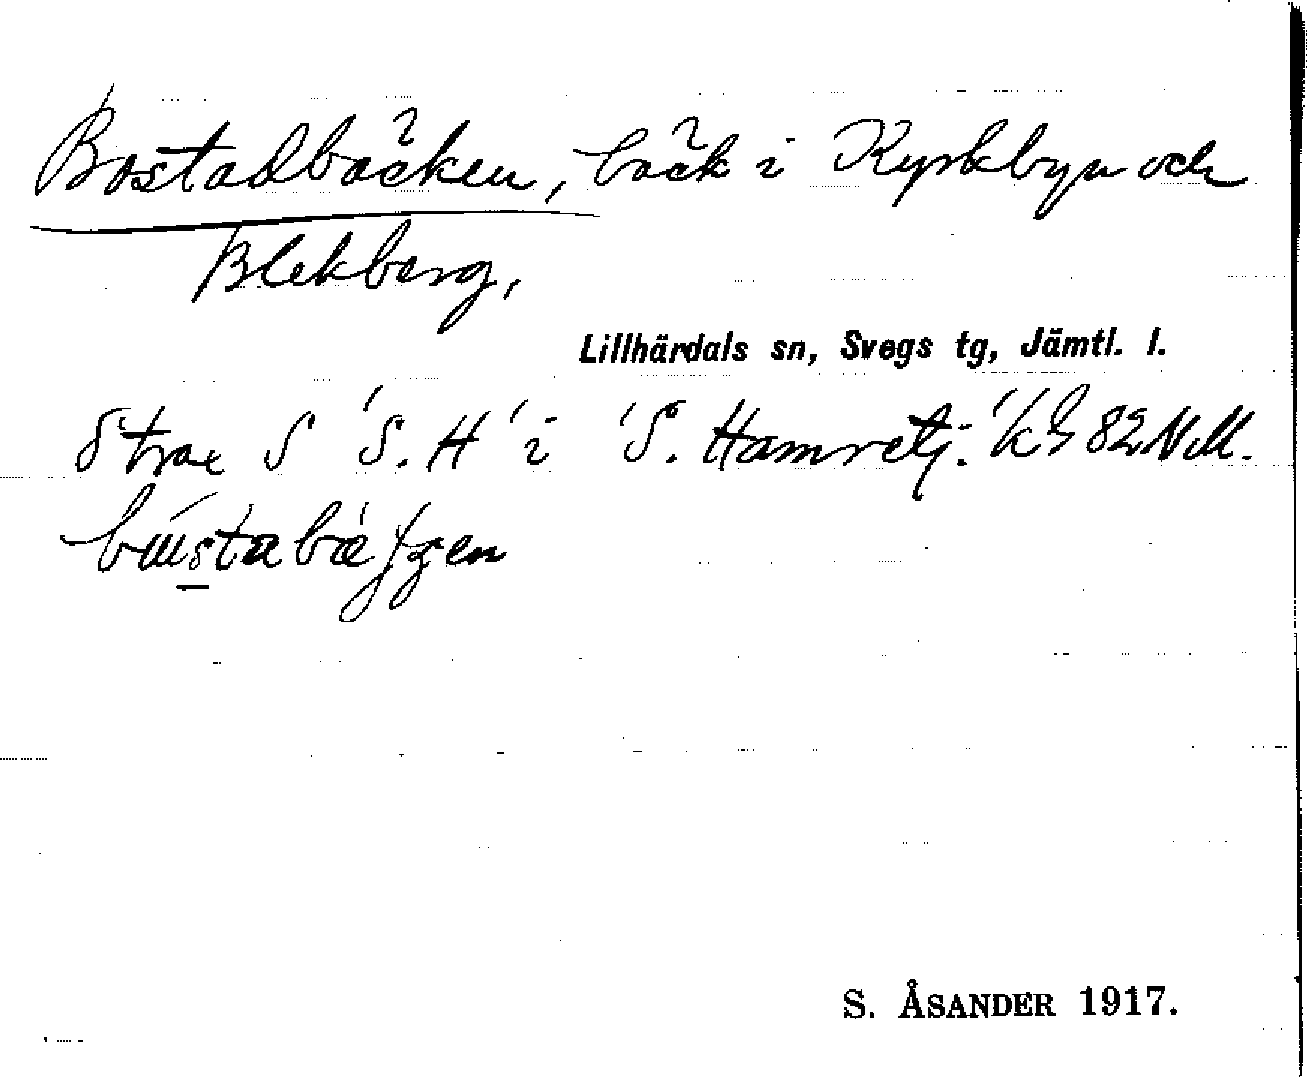 Bostadbäcken, bäck i Kyrkbyn och
Blekberg,
Lillhärdals sn, Svegs tg, Jämtl. l.
Strax S 'S. H' i 'S. Hamretj.' 82 N.M.
S. ÅSANDER 1917.